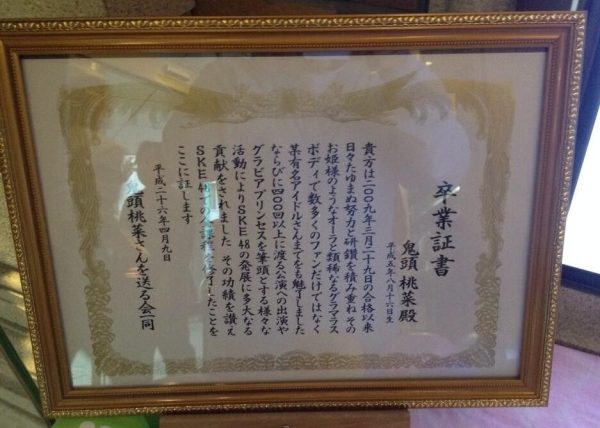 卒業証書
鬼頭 桃菜殿
平成五年八月十六日生
貴方は二〇〇九年三月二十九日の合格以来
日々たゆまぬ努力と研鑽を積み重ね その
お姫様のようなオーラと類稀なるグラマラス
ボディで数多くのファンだけではなく
某有名アイドルさんまでをも魅了しました
ならびに四〇〇回以上に渡る公演への出演や
グラビアプリンセスを筆頭とする様々な
活動によりSKE48の発展に多大なる
貢献をされました その功績を讃え
SKE48での 課程を修了したことを
ここに証します
平成二十六年四月九日
鬼頭桃菜さんを送る会一同